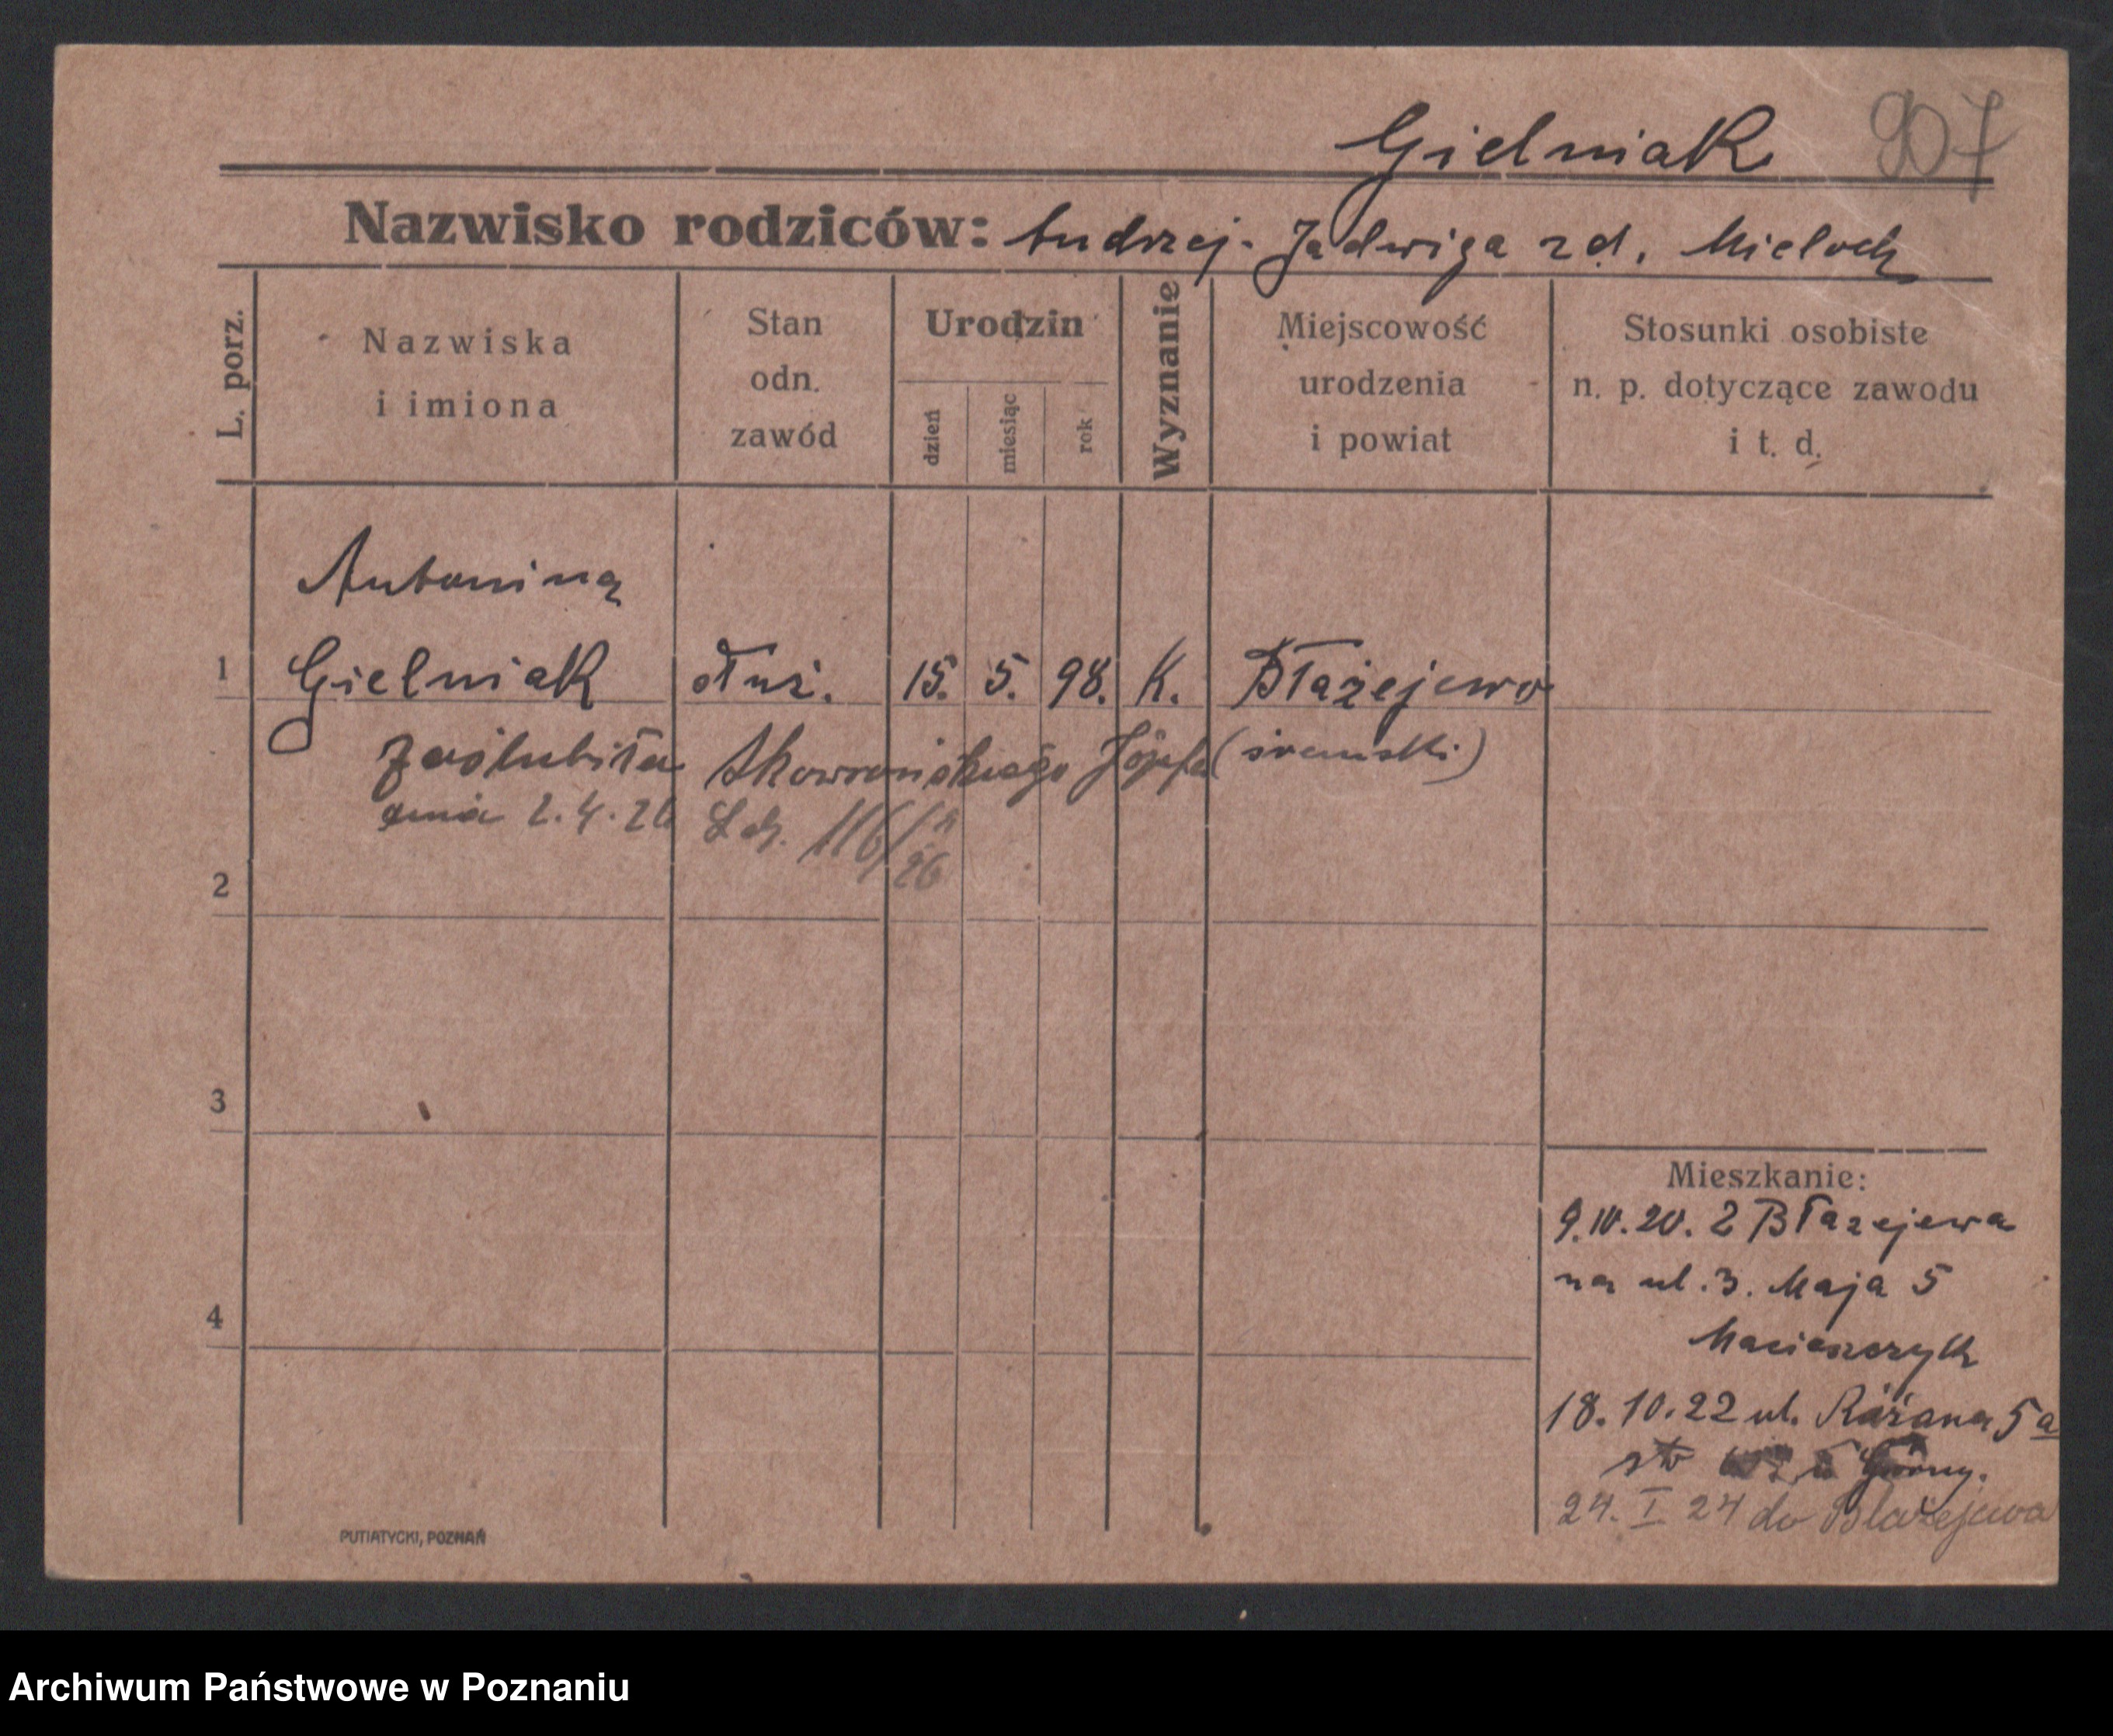 Gielniak 907
Nazwisko rodziców: Andrzej - Jadwiga zd. Mieloch
L. porz.
Nazwiska
i imiona
Stan
odn.
zawód
Urodzin
dzień
miesiąc
rok
Wyznanie
Miejscowość
urodzenia
i powiat
Stosunki osobiste
n. p. dotyczące zawodu
i t. d.
Antonina
1 Gielniak służ. 15. 5. 98. K. Błażejewo
zaślubiła Skowrońskiego Józefa (śremski)
dnia 2.4.26 Ldz. 116/
26
2
3
4
Mieszkanie:
9.10.20. z Błażejewa
na ul. 3. Maja 5
Macieszczyk
18.10.22 ul. Różana 5a
24. I 24 do Błażejewa
PUTIATYCKI, POZNAŃ
Archiwum Państwowe w Poznaniu